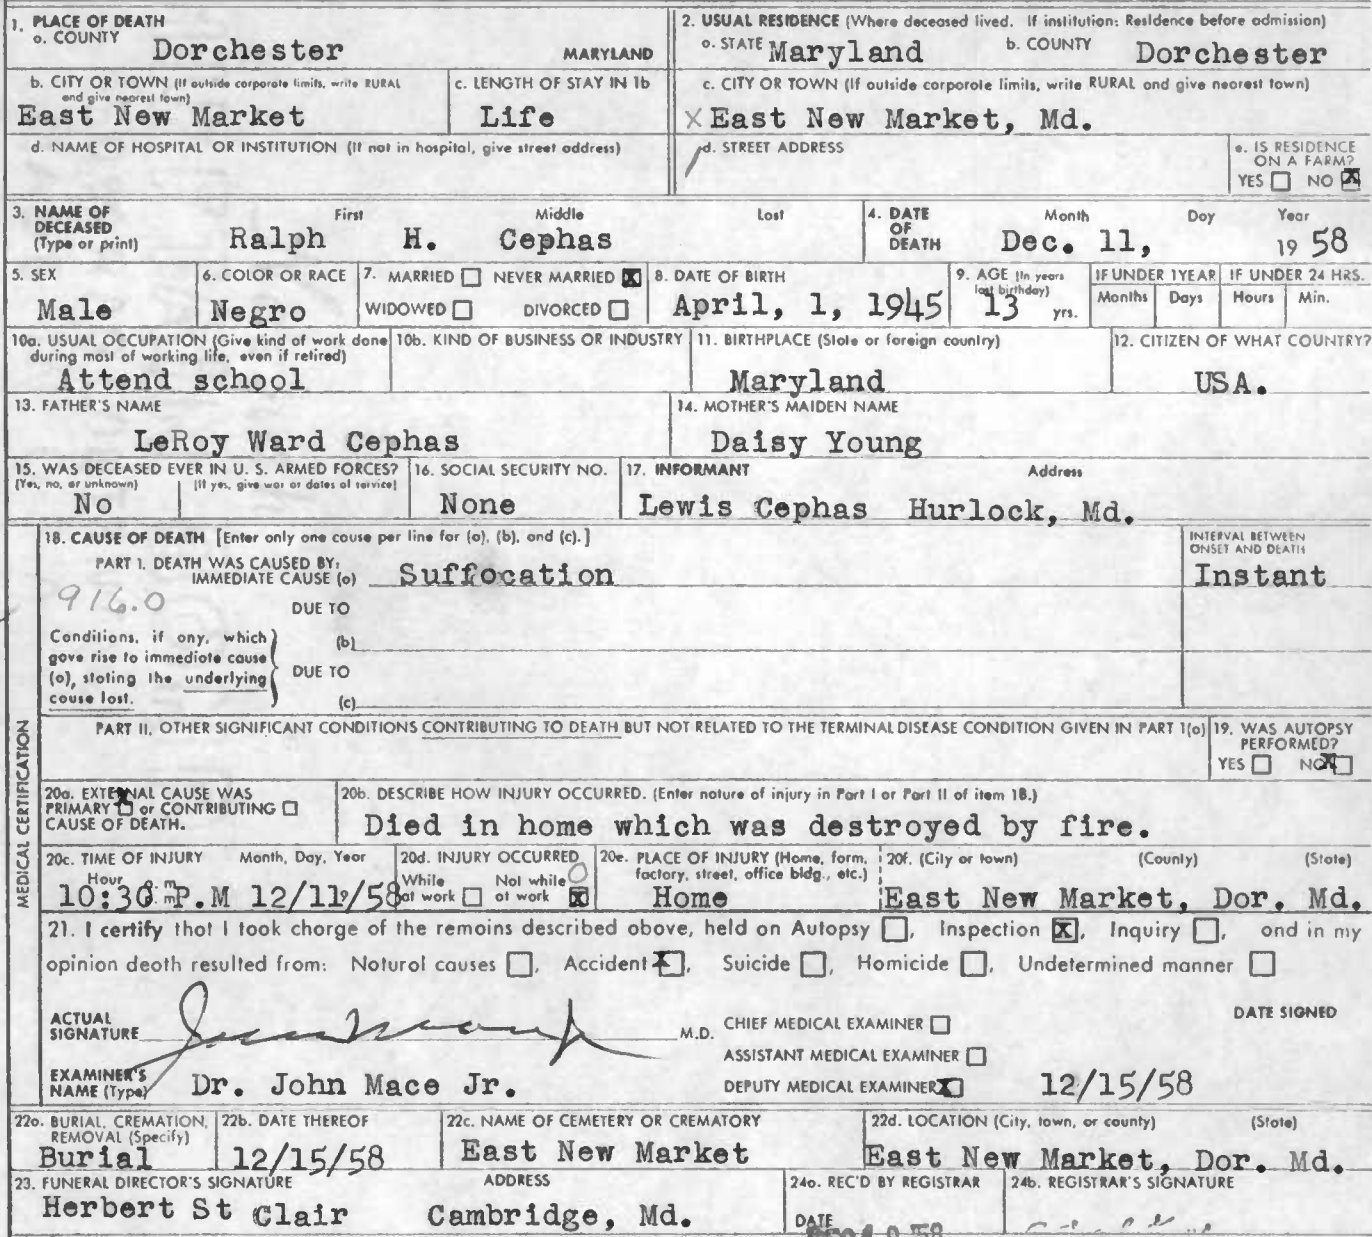 1. PLACE OF DEATH
a. COUNTY Dorchester MARYLAND
2. USUAL RESIDENCE (Where deceased lived. If institution: Residence before admission)
a. STATE Maryland b. COUNTY Dorchester
b. CITY OR TOWN (If outside corporate limits, write RURAL and give nearest town)
East New Market
c. LENGTH OF STAY IN 1b
Life
c. CITY OR TOWN (If outside corporate limits, write RURAL and give nearest town)
X East New Market, Md.
d. NAME OF HOSPITAL OR INSTITUTION (If not in hospital, give street address)
d. STREET ADDRESS
e. IS RESIDENCE ON A FARM?
YES NO X
3. NAME OF DECEASED (Type or print)
First Middle Last
Ralph H. Cephas
4. DATE OF DEATH
Month Day Year
Dec. 11, 1958
5. SEX
Male
6. COLOR OR RACE
Negro
7. MARRIED NEVER MARRIED X
WIDOWED DIVORCED
8. DATE OF BIRTH
April, 1, 1945
9. AGE (In years last birthday)
13 yrs.
IF UNDER 1 YEAR
Months Days
IF UNDER 24 HRS.
Hours Min.
10a. USUAL OCCUPATION (Give kind of work done during most of working life, even if retired)
Attend school
10b. KIND OF BUSINESS OR INDUSTRY
11. BIRTHPLACE (State or foreign country)
Maryland
12. CITIZEN OF WHAT COUNTRY?
USA.
13. FATHER'S NAME
LeRoy Ward Cephas
14. MOTHER'S MAIDEN NAME
Daisy Young
15. WAS DECEASED EVER IN U. S. ARMED FORCES?
(Yes, no, or unknown) (If yes, give war or dates of service)
No
16. SOCIAL SECURITY NO.
None
17. INFORMANT Address
Lewis Cephas Hurlock, Md.
MEDICAL CERTIFICATION
18. CAUSE OF DEATH [Enter only one cause per line for (a), (b), and (c).]
PART I. DEATH WAS CAUSED BY:
IMMEDIATE CAUSE (a) Suffocation
INTERVAL BETWEEN ONSET AND DEATH
Instant
916.0
DUE TO
(b)
Conditions, if any, which gave rise to immediate cause (a), stating the underlying cause last.
DUE TO
(c)
PART II. OTHER SIGNIFICANT CONDITIONS CONTRIBUTING TO DEATH BUT NOT RELATED TO THE TERMINAL DISEASE CONDITION GIVEN IN PART 1(a)
19. WAS AUTOPSY PERFORMED?
YES NO X
20a. EXTERNAL CAUSE WAS PRIMARY X or CONTRIBUTING CAUSE OF DEATH.
20b. DESCRIBE HOW INJURY OCCURRED. (Enter nature of injury in Part I or Part II of item 18.)
Died in home which was destroyed by fire.
20c. TIME OF INJURY Month, Day, Year
Hour
10:30 P.M 12/11/58
20d. INJURY OCCURRED
While at work Not while at work X
20e. PLACE OF INJURY (Home, farm, factory, street, office bldg., etc.)
Home
20f. (City or town) (County) (State)
East New Market, Dor. Md.
21. I certify that I took charge of the remains described above, held on Autopsy, Inspection X, Inquiry, and in my
opinion death resulted from: Natural causes, Accident X, Suicide, Homicide, Undetermined manner
ACTUAL SIGNATURE M.D.
CHIEF MEDICAL EXAMINER
ASSISTANT MEDICAL EXAMINER
DEPUTY MEDICAL EXAMINER X
DATE SIGNED
12/15/58
EXAMINER'S NAME (Type) Dr. John Mace Jr.
22a. BURIAL, CREMATION, REMOVAL (Specify)
Burial
22b. DATE THEREOF
12/15/58
22c. NAME OF CEMETERY OR CREMATORY
East New Market
22d. LOCATION (City, town, or county) (State)
East New Market, Dor. Md.
23. FUNERAL DIRECTOR'S SIGNATURE ADDRESS
Herbert St Clair Cambridge, Md.
24a. REC'D BY REGISTRAR
DATE
24b. REGISTRAR'S SIGNATURE